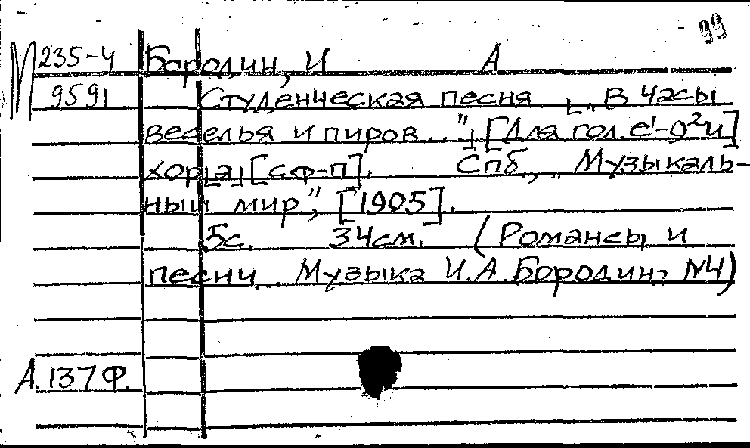 99
М 235-4 Бородин, И А
9591 Студенческая песня [„В часы
веселья и пиров..."] [Для гол. e¹-g² и
хор[а] [с ф-п]. Спб, „Музыкаль-
ный мир", [1905].
5с. 34см. (Романсы и
песни. Музыка И.А. Бородин: №4)
А. 137 Ф.